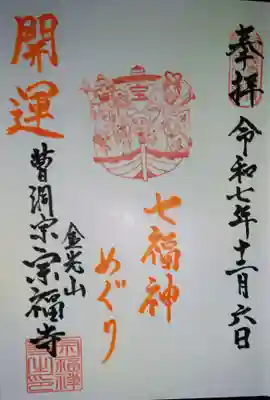 奉拝
令和七年十二月六日
七福神
めぐり
開運
金光山
曹洞宗宗福寺
宝